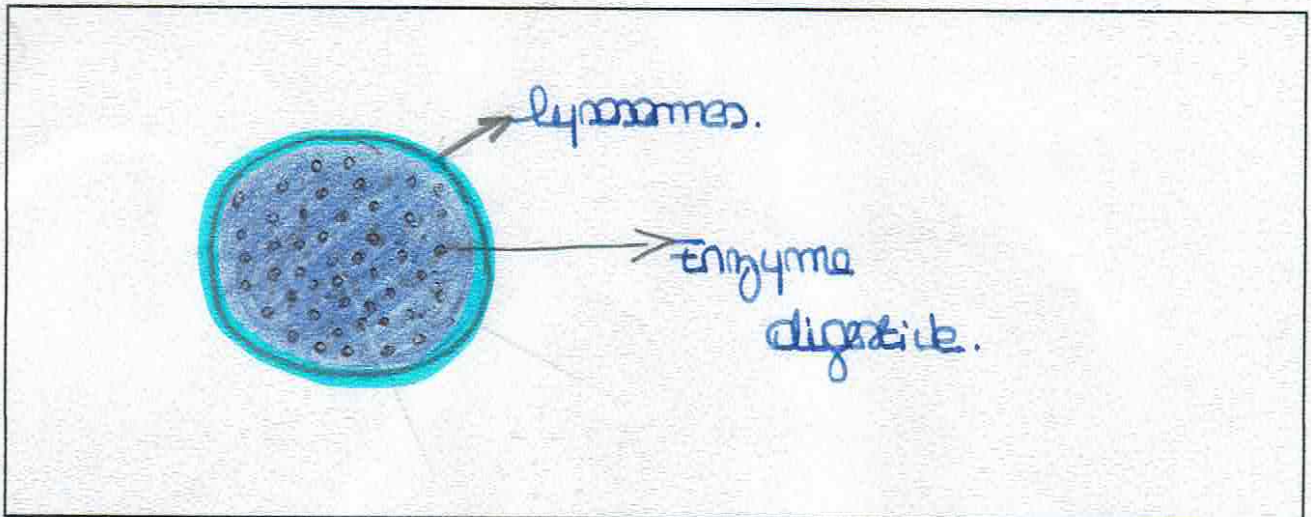 lysosomes.
Enzyme
digestive.